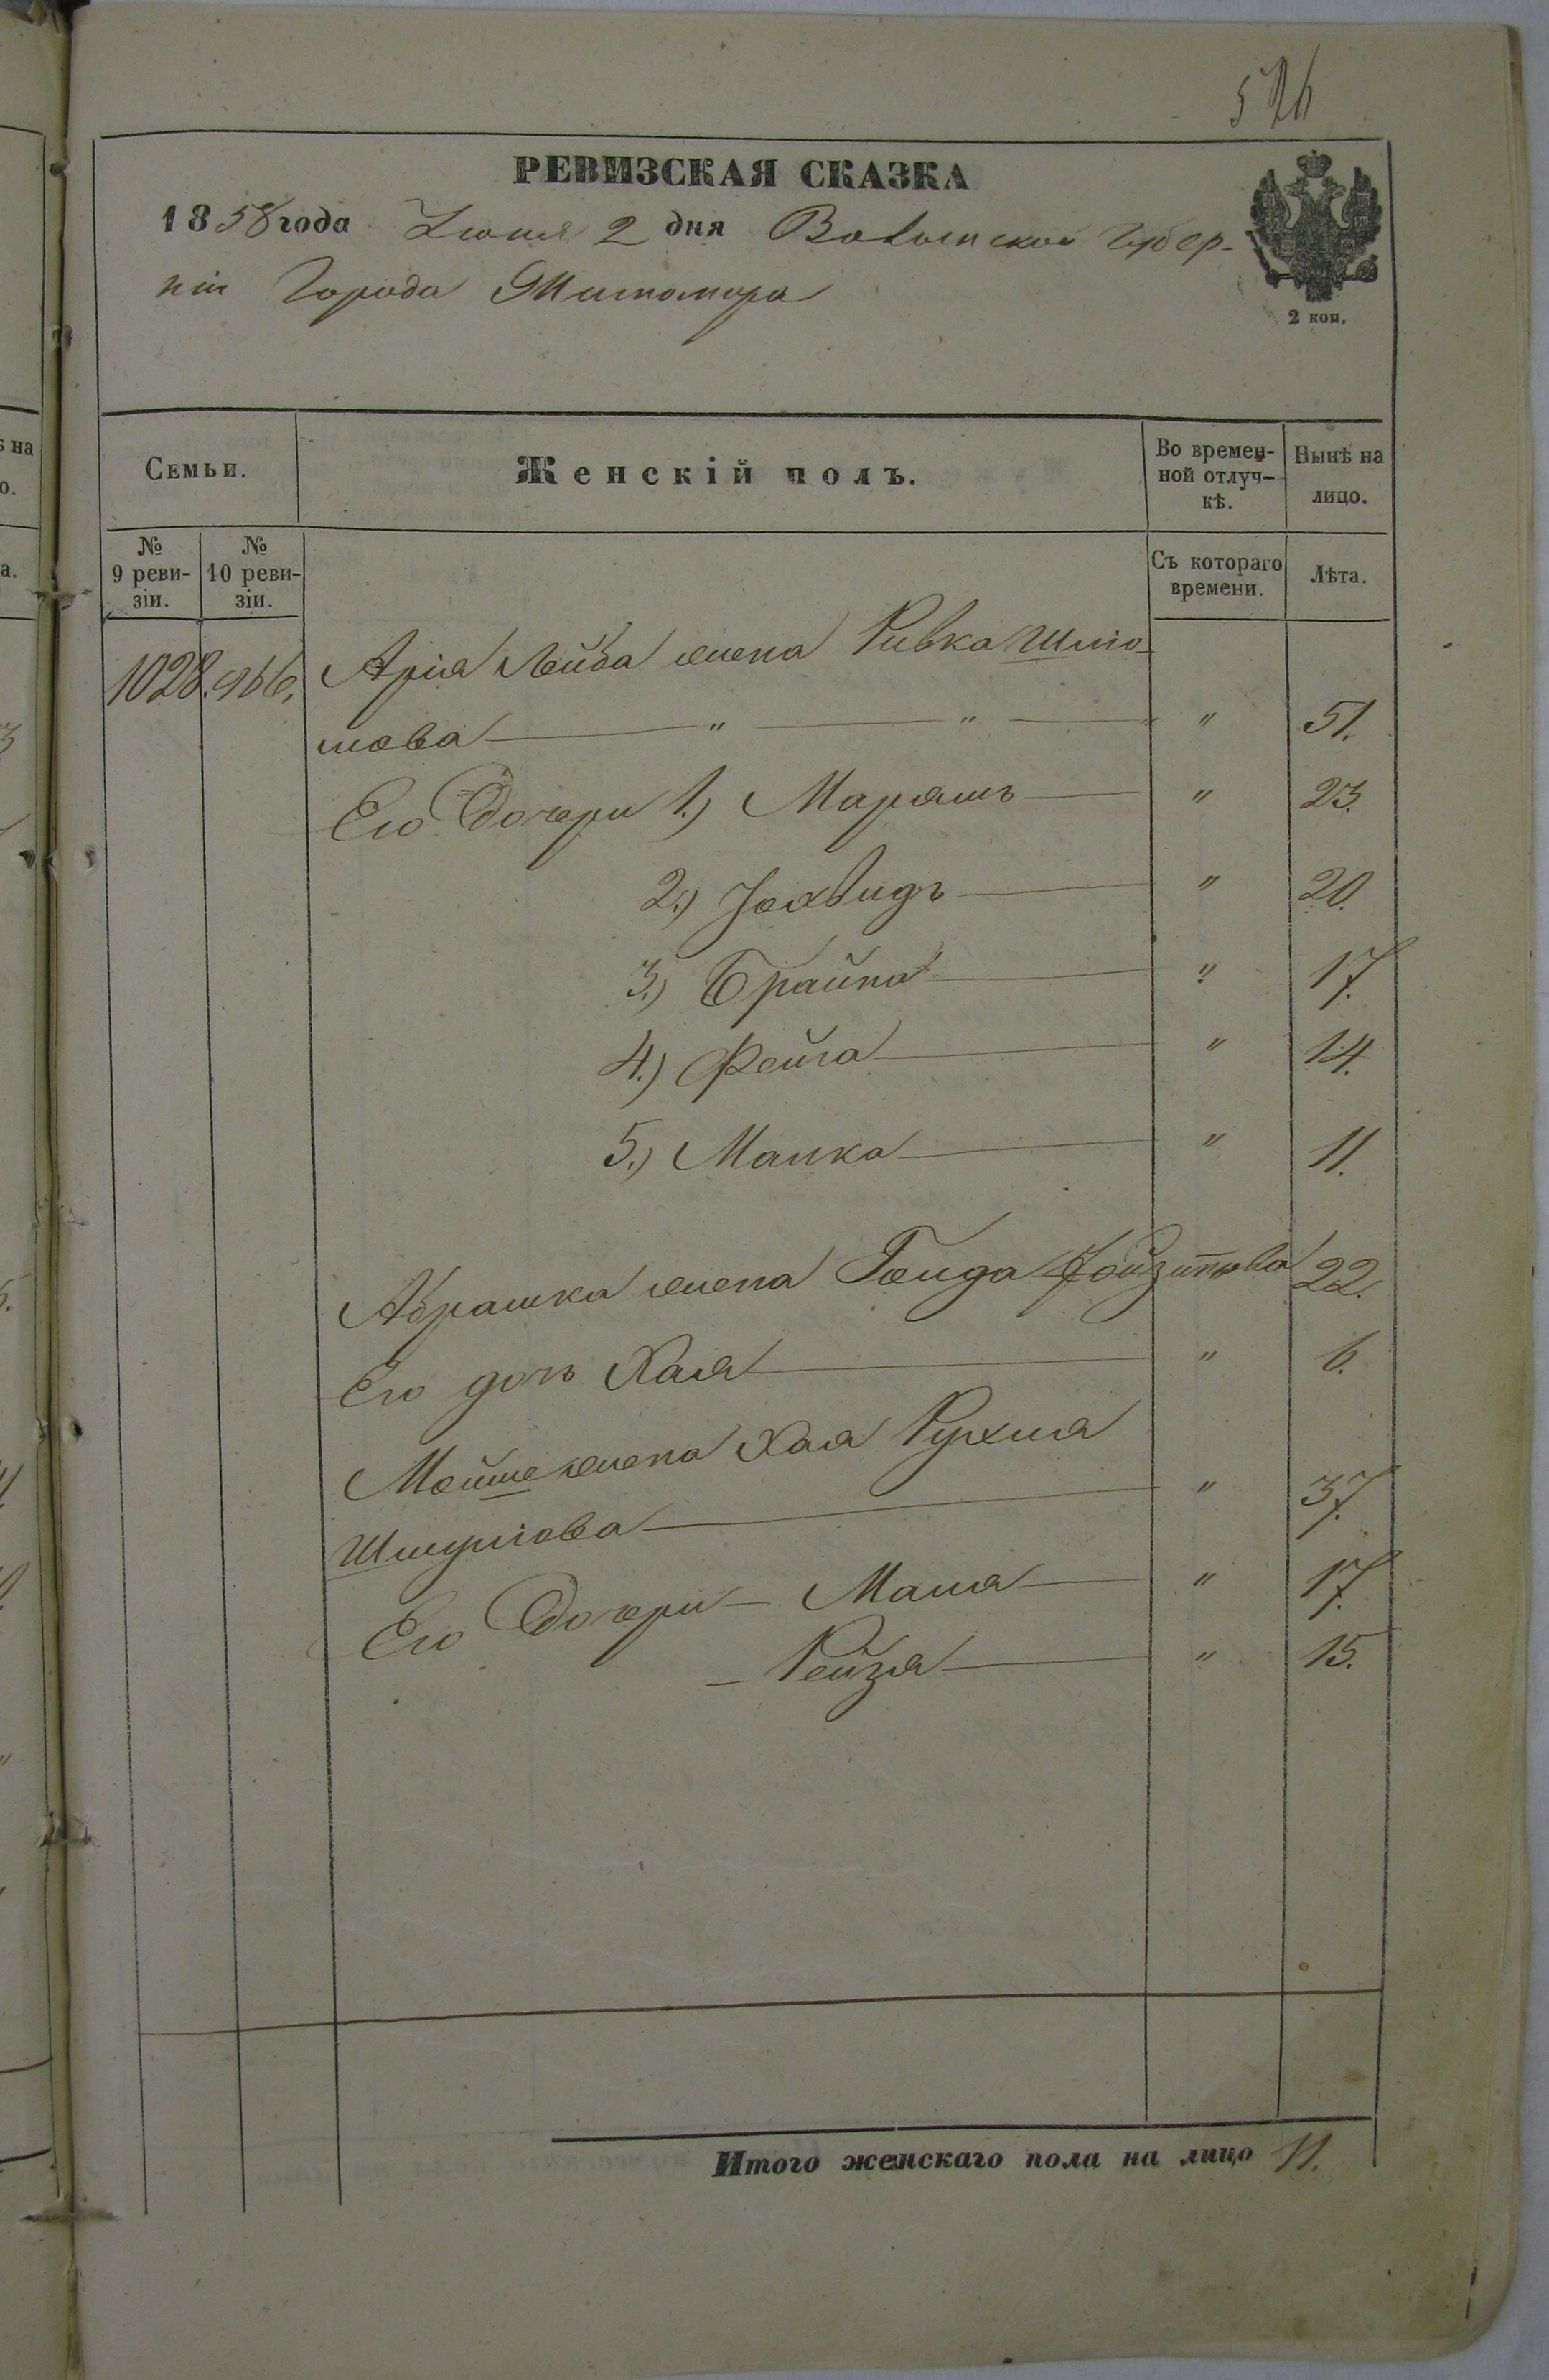 526
РЕВИЗСКАЯ СКАЗКА
1858 года Іюня 2 дня Волынской Губер-
ніи Города Житомира
2 коп.
Семьи. Женскій полъ. Во времен-ной отлуч-кѣ. Нынѣ на лицо.
№ 9 реви-зіи. № 10 реви-зіи. Съ котораго времени. Лѣта.
1028. 966. Аріа Лейба жена Ривка Шлio-
мова — " — " — " 51.
Его Дочери 1.) Марямъ — " 23.
2.) Іохвидъ — " 20.
3.) Брайна — " 17.
4.) Фейга — " 14.
5.) Малка — " 11.
Абрашка жена Гоида 22.
Его дочь Хая — " 6.
Мойше жена Хая Рухля
Шмулiова — " 37.
Его Дочери — Маля — " 17.
— Рейзя — " 15.
Итого женскаго пола на лицо 11.
ѣ на
о.
а.